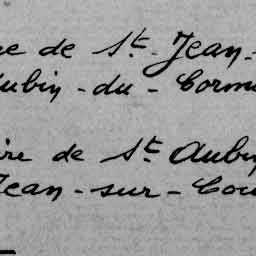 re de St. Jean-
Aubin-du-Cormi
ire de St. Aubin
Jean-sur-Cou